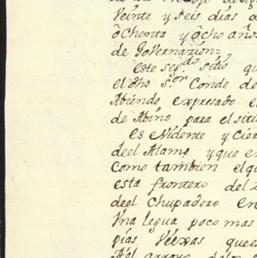 Veinte y seis dias d
ôchenta y ôcho años
de Governazion=
Este seg.do sitio qu
el dho S.or Conde de
Abiendo expresado e
de Abino para el siti
es Vidente y Cier
deel Alamo, y que en
Como tambien el qu
esta frontero del
deel Chupadero en
Vna legua poco mas
pias Viexas quee